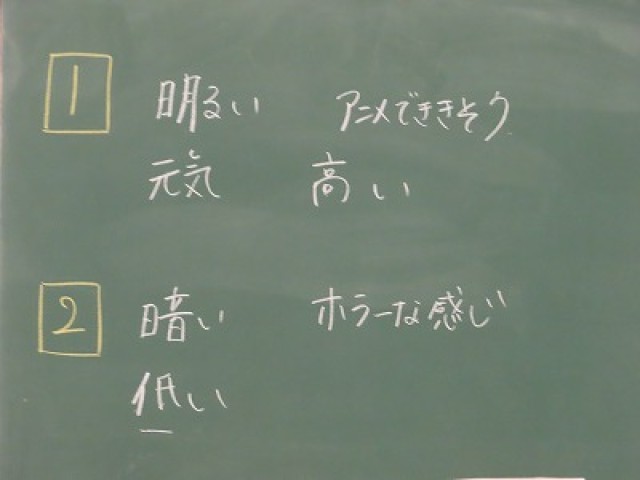 1
明るい アニメでききそう
元気 高い
2
暗い ホラーな感じ
低い